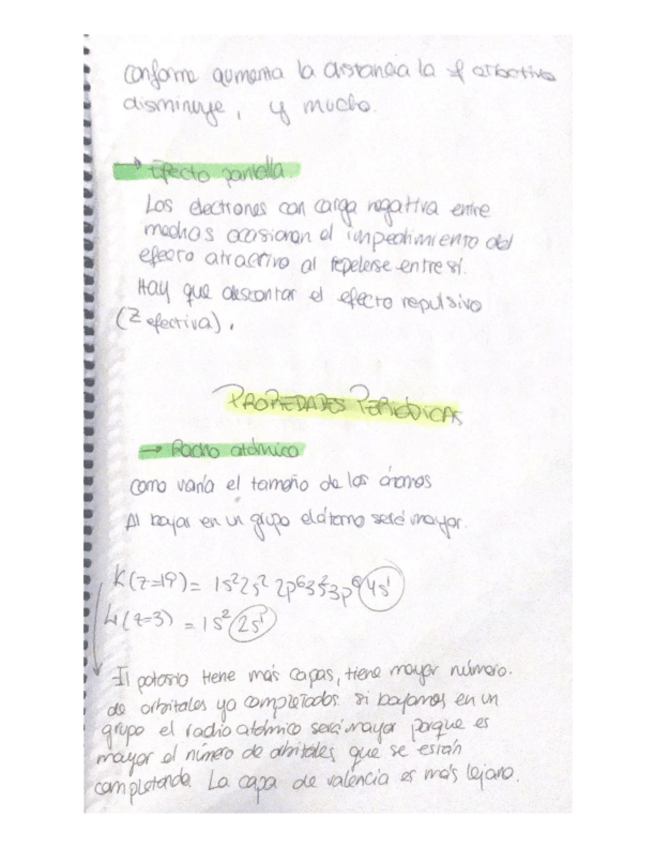 conforme aumenta la distancia la f atractiva
disminuye, y mucho.
→ Efecto pantalla
Los electrones con carga negativa entre
medias ocasionan el impedimento del
efecto atractivo al repelerse entre sí.
Hay que descontar el efecto repulsivo
(Z efectiva).
PROPIEDADES PERIÓDICAS
→ Radio atómico
como varía el tamaño de los átomos
Al bajar en un grupo el átomo será mayor.
K(z=19) = 1s² 2s² 2p⁶ 3s² 3p⁶ 4s¹
Li(z=3) = 1s² 2s¹
El potasio tiene más capas, tiene mayor número.
de orbitales ya completados si bajamos en un
grupo el radio atómico será mayor porque es
mayor el número de orbitales que se están
completando. La capa de valencia es más lejana.